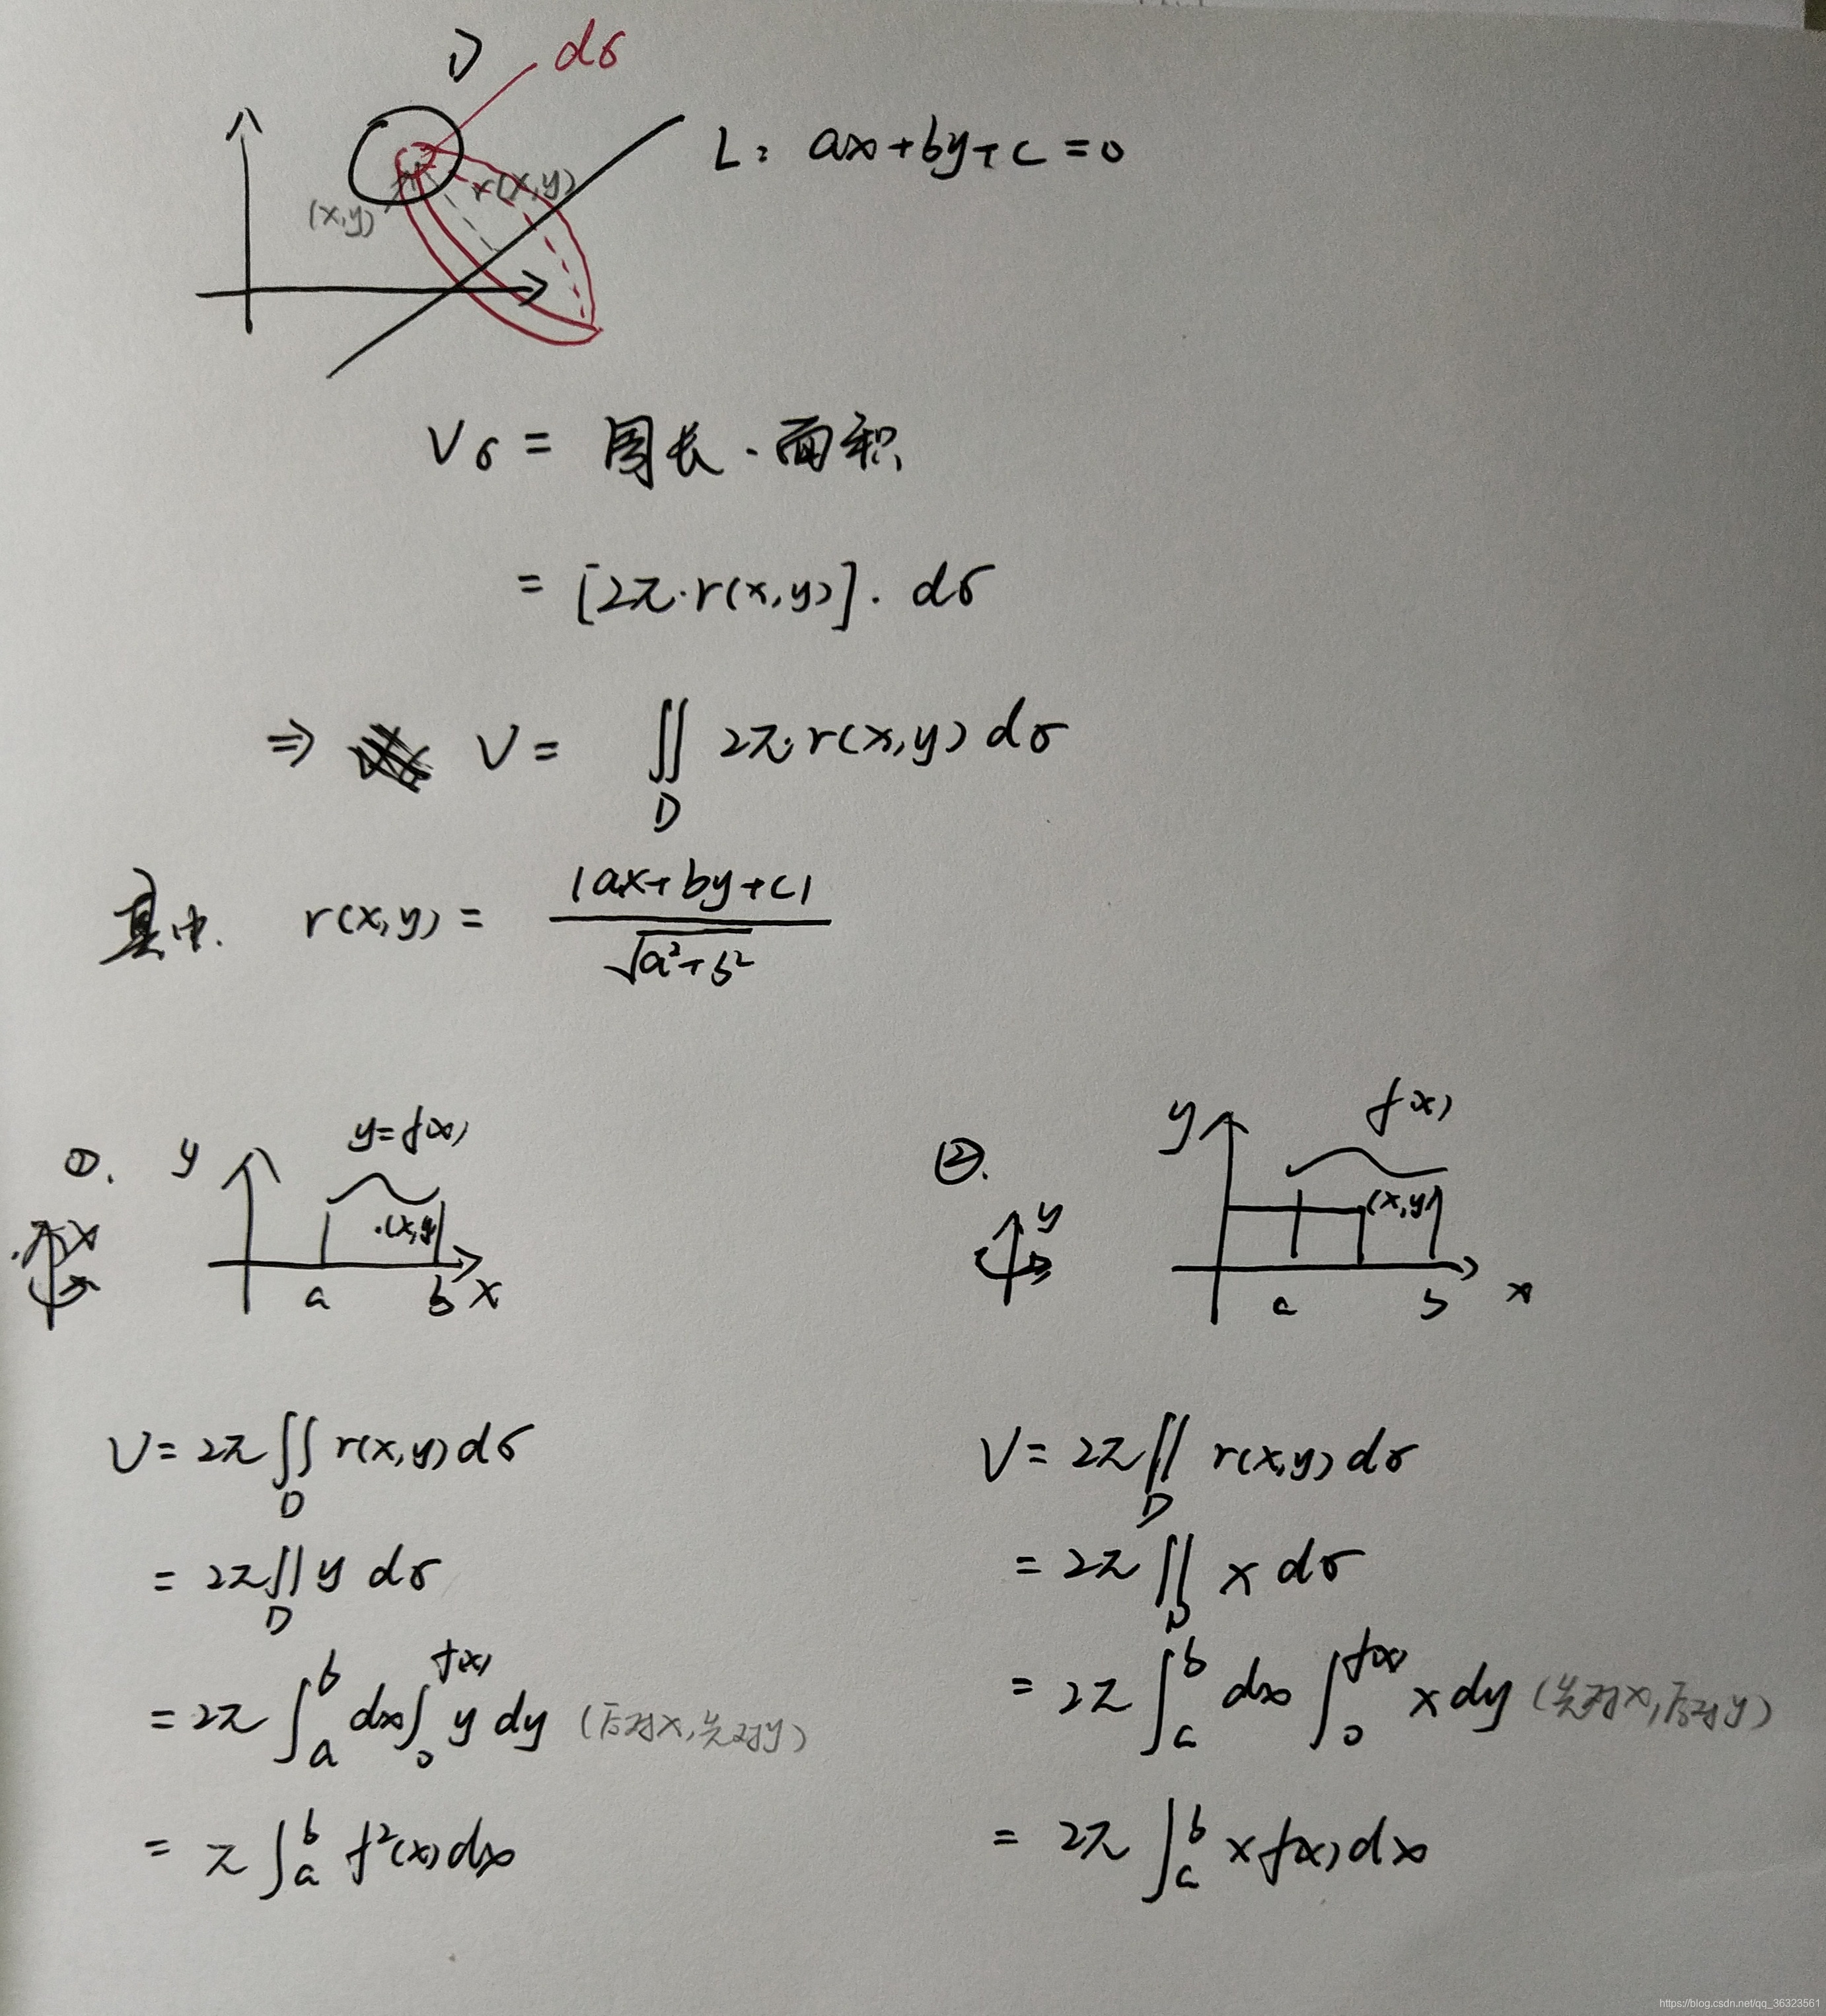 D dσ
L: ax+by+c=0
(x,y) r(x,y)
Vσ = 周长·面积
= [2π·r(x,y)]·dσ
⇒ V = ∬_D 2π·r(x,y)dσ
其中. r(x,y) = |ax+by+c| / √(a²+b²)
①. y y=f(x)
.(x,y)
a b x
V = 2π∬_D r(x,y)dσ
= 2π∬_D y dσ
= 2π∫_a^b dx∫_0^{f(x)} y dy (后对x,先对y)
= π∫_a^b f²(x)dx
②. y y f(x)
(x,y)
a b x
V = 2π∬_D r(x,y)dσ
= 2π∬_D x dσ
= 2π∫_a^b dx∫_0^{f(x)} x dy (先对x,后对y)
= 2π∫_a^b x f(x)dx
https://blog.csdn.net/qq_36323561